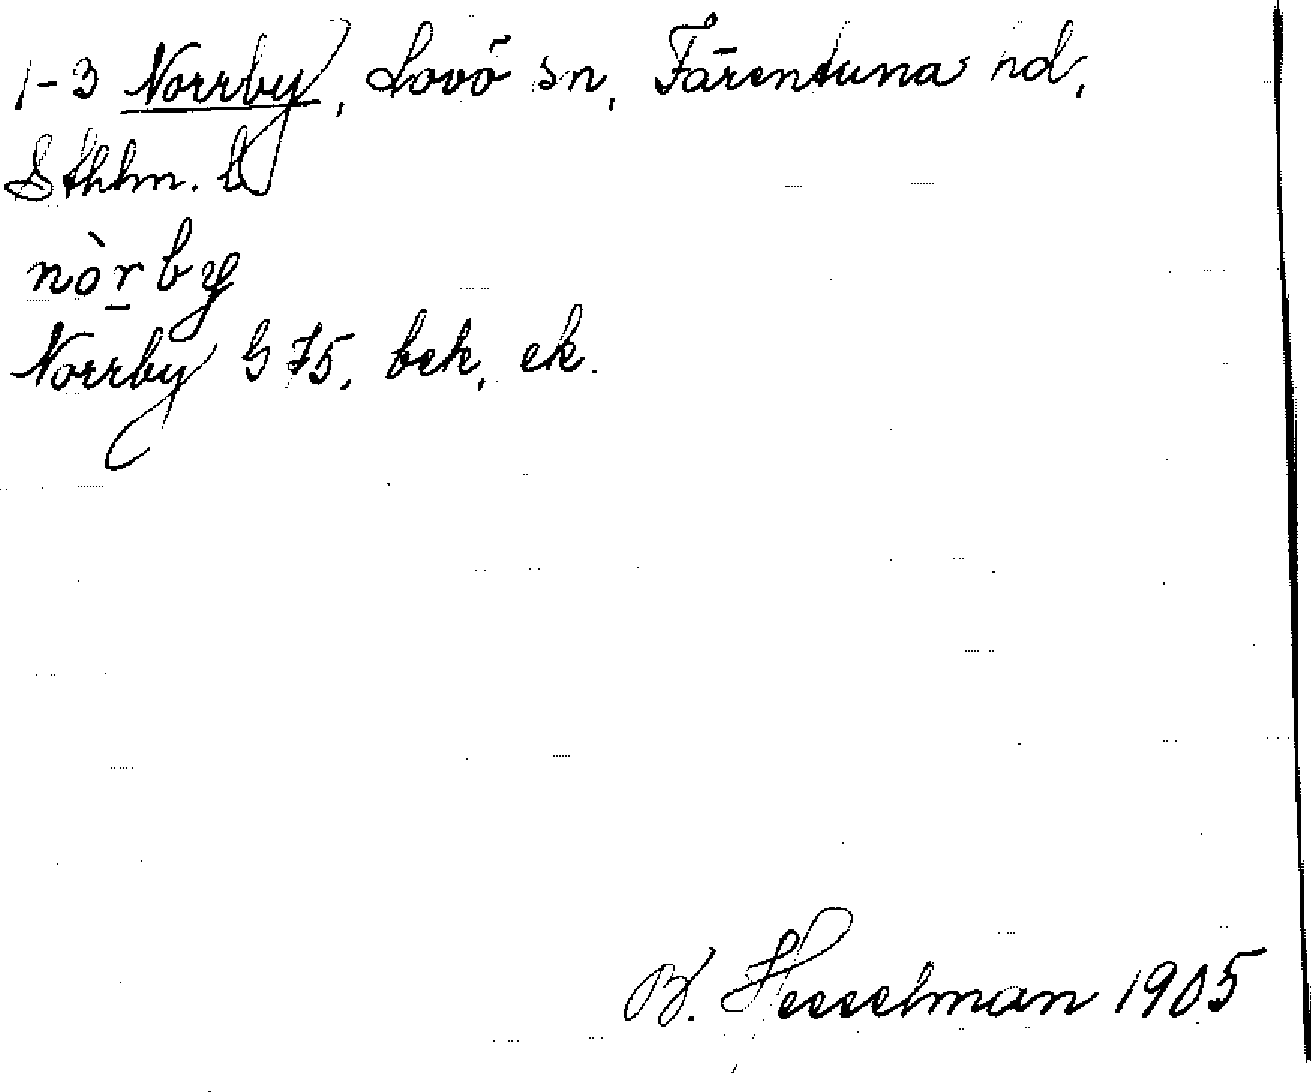 1-3 Norrby, Lovö sn, Färentuna hd,
Sthlm. l
nòṟby
Norrby G 75, bek, ek.
B. Hesselman 1905